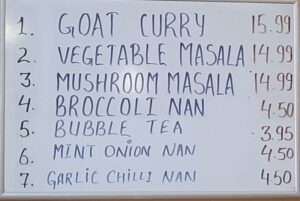 1. GOAT CURRY 15.99
2. VEGETABLE MASALA 14.99
3. MUSHROOM MASALA 14.99
4. BROCCOLI NAN 4.50
5. BUBBLE TEA 3.95
6. MINT ONION NAN 4.50
7. GARLIC CHILLI NAN 4.50